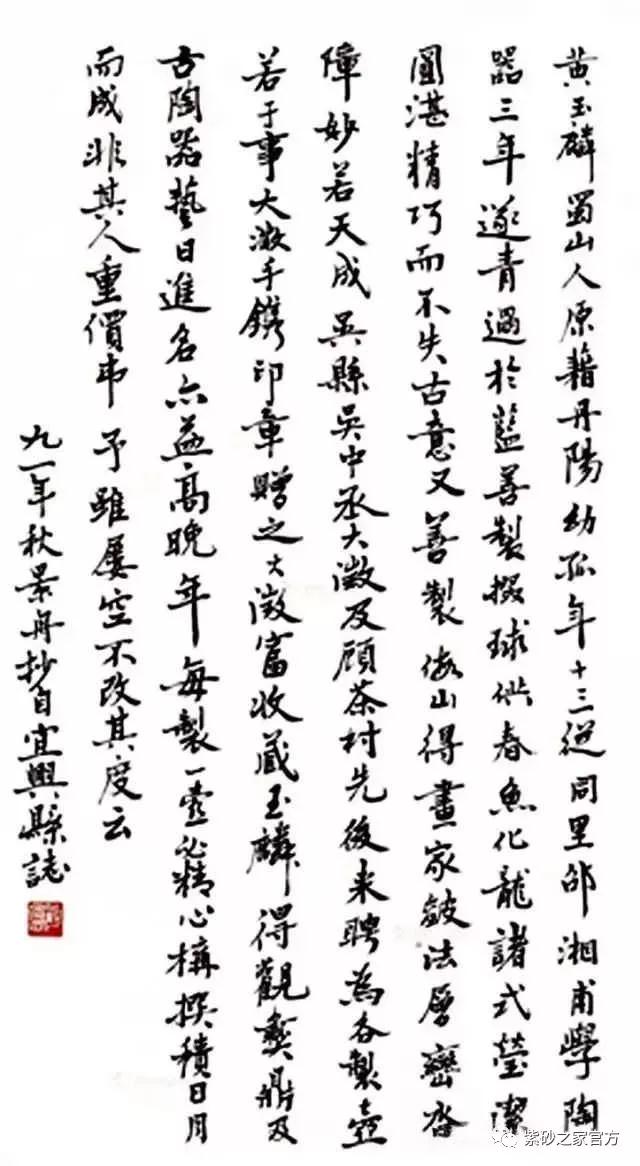 黄玉麟蜀山人原籍丹陽幼孤年十三從同里邵湘甫學陶
器三年遂青過於藍善製掇球供春魚化龍諸式瑩潔
圓湛精巧而不失古意又善製假山得畫家皴法層巒沓
障妙若天成吳縣吳中丞大澂及顧茶村先後來聘為各製壺
若干事大澂手鐫印章贈之大澂富收藏玉麟得觀彝鼎及
古陶器藝日進名亦益高晚年每製一壺必精心構撰積日月
而成非其人重價弗予雖屢空不改其度云
九一年秋景舟抄自宜興縣誌
紫砂之家官方